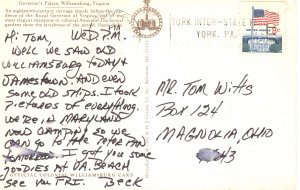 Governor's Palace, Williamsburg, Virginia
An eighteenth-century carriage stands before the residence of the Royal Governor of Virginia, one of the most elegant mansions in colonial America.
HI TOM, WED P.M.
WELL WE SAW OLD
WILLIAMSBURG TODAY &
JAMESTOWN, AND EVEN
SOME OLD SHIPS. I TOOK
PICTURES OF EVERYTHING.
WE'RE IN MARYLAND
NOW CAMPING SO WE
CAN GO TO THE PETER PAN
TOMORROW. I GOT YOU SOME
GOODIES AT VA. BEACH
SEE YOU FRI. BECK
OFFICIAL COLONIAL WILLIAMSBURG CARD
YORK INTER-STATE
YORK, PA.
MR. TOM WITTS
BOX 124
MAGNOLIA, OHIO